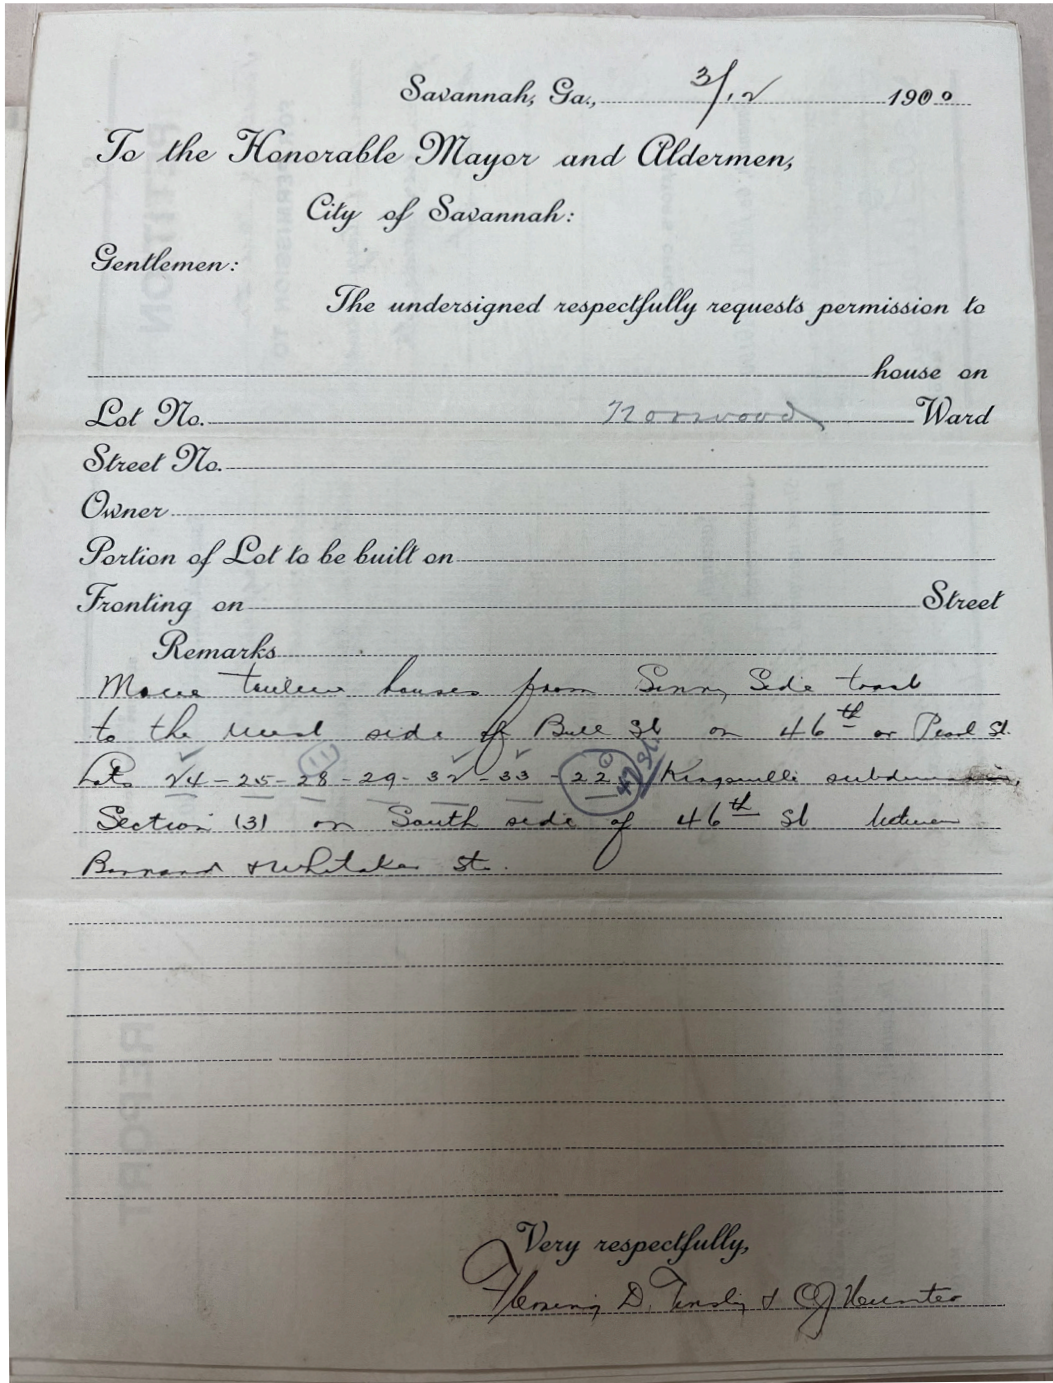 Savannah, Ga., 3/12 1900
To the Honorable Mayor and Aldermen,
City of Savannah:
Gentlemen:
The undersigned respectfully requests permission to
house on
Lot No. Norwood Ward
Street No.
Owner
Portion of Lot to be built on
Fronting on Street
Remarks
Move houses from Sunny Side
to the west side of Bull St on 46th or Pearl St.
Lots 24 - 25 - 28 - 29 - 32 - 33 - 22 47 St. Kingsville
Section (3) on South side of 46th St between
Barnard & Whitaker Sts.
Very respectfully,
D. Tinsly & CJ Hunter